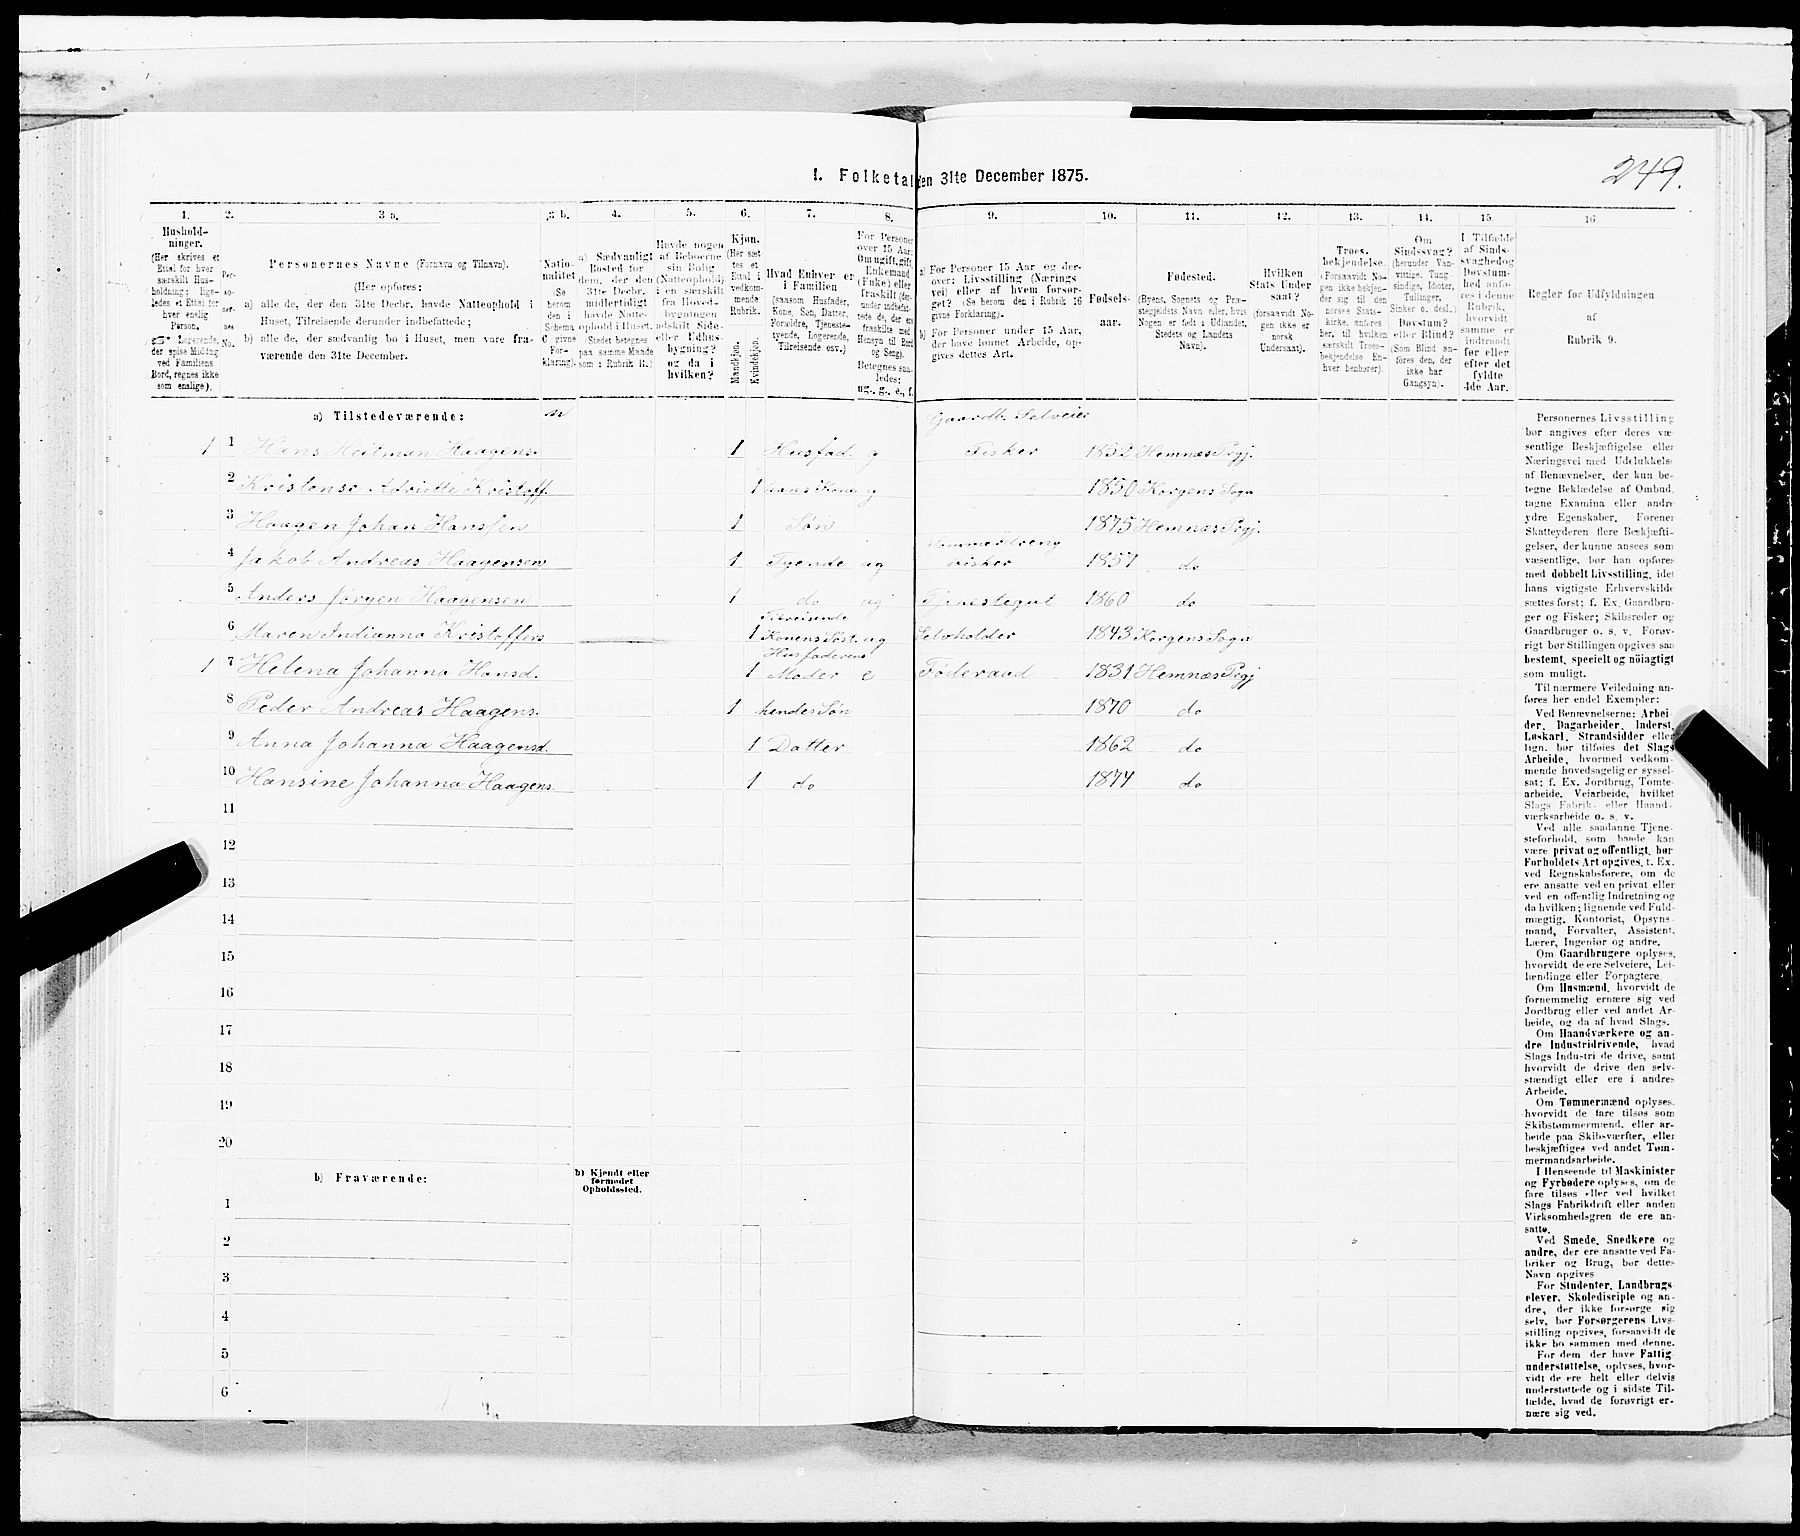 249.
1. Folketal den 31te December 1875.
1. 2. 3 a. 3 b. 4. 5. 6. 7. 8. 9. 10. 11. 12. 13. 14. 15. 16
Hushold-
ninger.
(Her skrives et
Ettal for hver
særskilt Hus-
holdning; lige-
ledes et Ettal for
hver enslig
Person.
Logerende,
der spise Middag
ved Familiens
Bord, regnes ikke
som enslige).
Per-
so-
ner-
nes
No.
Personernes Navne (Fornavn og Tilnavn).
(Her opføres:
a) alle de, der den 31te Decbr. havde Natteophold i
Huset, Tilreisende derunder indbefattede;
b) alle de, der sædvanlig bo i Huset, men vare fra-
værende den 31te December.
Natio-
nalitet
(Se
herom
den i
Schema
C givne
For-
klaring).
a) Sædvanligt
Bosted for
dem, der den
31te Decbr.
midlertidigt
havde Natte-
ophold i Huset.
(Stedet betegnes
paa samme Maade
som i Rubrik 11.)
Havde nogen
af Beboerne
sin Bolig
(Natteophold)
i en særskilt
fra Hoved-
bygningen
adskilt Side-
eller Udhus-
bygning?
og da i
hvilken?
Kjøn.
(Her sæt-
tes et
Ettal i
vedkom-
mende
Rubrik.
Mandkjøn.
Kvindekjøn.
Hvad Enhver er
i Familien
(saasom Husfader,
Kone, Søn, Datter,
Forældre, Tjeneste-
tyende, Logerende,
Tilreisende osv.)
For Personer
over 15 Aar:
Om ugift, gift,
Enkemand
(Enke) eller
fraskilt (der-
under indbefat-
tede de, der ere
fraskilte med
Hensyn til Bord
og Seng).
Betegnes saa-
ledes:
ug., g., e., f.
a) For Personer 15 Aar og der-
over: Livsstilling (Nærings
vei) eller af hvem forsør-
get? (Se herom den i Rubrik 16
givne Forklaring).
b) For Personer under 15 Aar,
der have lønnet Arbeide, op-
gives dettes Art.
Fødsels-
aar.
Fødested.
(Byens, Sognets og Præ-
stegjeldets Navn eller, hvis
Nogen er født i Udlandet,
Stedets og Landets
Navn).
Hvilken
Stats Under
saat?
(forsaavidt No-
gen ikke er
norsk
Undersaat).
Troes-
bekjendelse.
(Forsaavidt No-
gen ikke bekjen-
der sig til den
norske Stats-
kirke, anføres
her, til hvilken
særskilt Troes-
bekjendelse En-
hver henhører).
Om
Sindssvag?
(herunder Van-
vittige, Tung-
sindige, Idioter,
Tullinger,
Sinker o. desl.)
Døvstum?
eller Blind?
(Som Blind an-
føres den, der
ikke har
Gangsyn).
I Tilfælde
af Sinds-
svaghed og
Døvstum-
hed anfø-
res i denne
Rubrik,
hvorvidt
samme er
indtraadt
før eller
efter det
fyldte
4de Aar.
Regler for Udfyldningen
af
Rubrik 9.
a) Tilstedeværende: n Gaardb. Selveier
1 1 Hans Heitman Haagens. 1 Husfad. g Fisker 1852 Hemnæs Prgj.
2 Kristense Adriette Kristoff. 1 hans Kone g 1850 Korgens Sogn
3 Haagen Johan Hanssen 1 Søn 1875 Hemnæs Prgj.
4 Jakob Andreas Haagensen 1 Tyende ug Fisker 1857 do
5 Anders Jørgen Haagensen 1 do ug Tjenestegut 1860 do
Tilreisende
6 Maren Indianna Kristoffers 1 Konens Søst. ug Selvholder 1843 Korgens Sogn
Husfaderens
1 7 Helena Johanna Hansd. 1 Moder e Føderaad 1831 Hemnæs Prgj
8 Peder Andreas Haagens. 1 hendes Søn 1870 do
9 Anna Johanna Haagensd. 1 Datter 1862 do
10 Hansine Johanna Haagens. 1 do 1874 do
11
12
13
14
15
16
17
18
19
20
b) Fraværende:
b) Kjendt eller
formodet
Opholdssted.
1
2
3
4
5
6
Personernes Livsstilling
bør angives efter deres væ-
sentlige Beskjæftigelse eller
Næringsvei med Udelukkelse
af Benævnelser, der kun be-
tegne Beklædelse af Ombud,
tagne Examina eller andre
ydre Egenskaber. Forener
Skatteyderen flere Beskjæfti-
gelser, der kunne ansees som
væsentlige, bør han opføres
med dobbelt Livsstilling, idet
hans vigtigste Erhvervskilde
sættes først; f. Ex. Gaardbru-
ger og Fisker; Skibsreder og
Gaardbruger o. s. v. Forøv-
rigt bør Stillingen opgives saa
bestemt, specielt og nøiagtigt
som muligt.
Til nærmere Veiledning an-
føres her endel Exempler:
Ved Benævnelserne: Arbei-
der, Dagarbeider, Inderst,
Løskarl, Strandsidder eller
lign. bør tilføies det Slags
Arbeide, hvormed vedkom-
mende hovedsagelig er syssel-
sat; f. Ex. Jordbrug, Tomte-
arbeide, Veiarbeide, hvilket
Slags Fabrik- eller Haand-
værksarbeide o. s. v.
Ved alle saadanne Tjene-
steforhold, som baade kan
være privat og offentligt, bør
Forholdets Art opgives, t. Ex.
ved Regnskabsførere, om de
ere ansatte ved en privat eller
ved en offentlig Indretning og
da hvilken; lignende ved Fuld-
mægtig, Kontorist, Opsyns-
mand, Forvalter, Assistent,
Lærer, Ingeniør og andre.
Om Gaardbrugere oplyses,
hvorvidt de ere Selveiere, Lei-
lændinge eller Forpagtere.
Om Husmænd, hvorvidt de
fornemmelig ernære sig ved
Jordbrug eller ved andet Ar-
beide, og da af hvad Slags.
Om Haandværkere og an-
dre Industridrivende, hvad
Slags Industri de drive, samt
hvorvidt de drive den selv-
stændigt eller ere i andres
Arbeide.
Om Tømmermænd oplyses,
hvorvidt de fare tilsøs som
Skibstømmermænd, eller ar-
beide paa Skibsværfter, eller
beskjæftiges ved andet Tøm-
mermandsarbeide.
I Henseende til Maskinister
og Fyrbødere oplyses, om de
fare tilsøs eller ved hvilket
Slags Fabrikdrift eller anden
Virksomhedsgren de ere an-
satte.
Ved Smede, Snedkere og
andre, der ere ansatte ved Fa-
briker og Brug, bør dettes
Navn opgives
For Studenter, Landbrugs-
elever, Skoledisciple og an-
dre, der ikke forsørge sig
selv, bør Forsørgerens Livs-
stilling opgives, forsaavidt de
ikke bo sammen med denne.
For dem, der have Fattig-
understøttelse, oplyses, hvor-
vidt de ere helt eller delvis
understøttede og i sidste Til-
fælde, hvad de forøvrigt er-
nære sig ved.